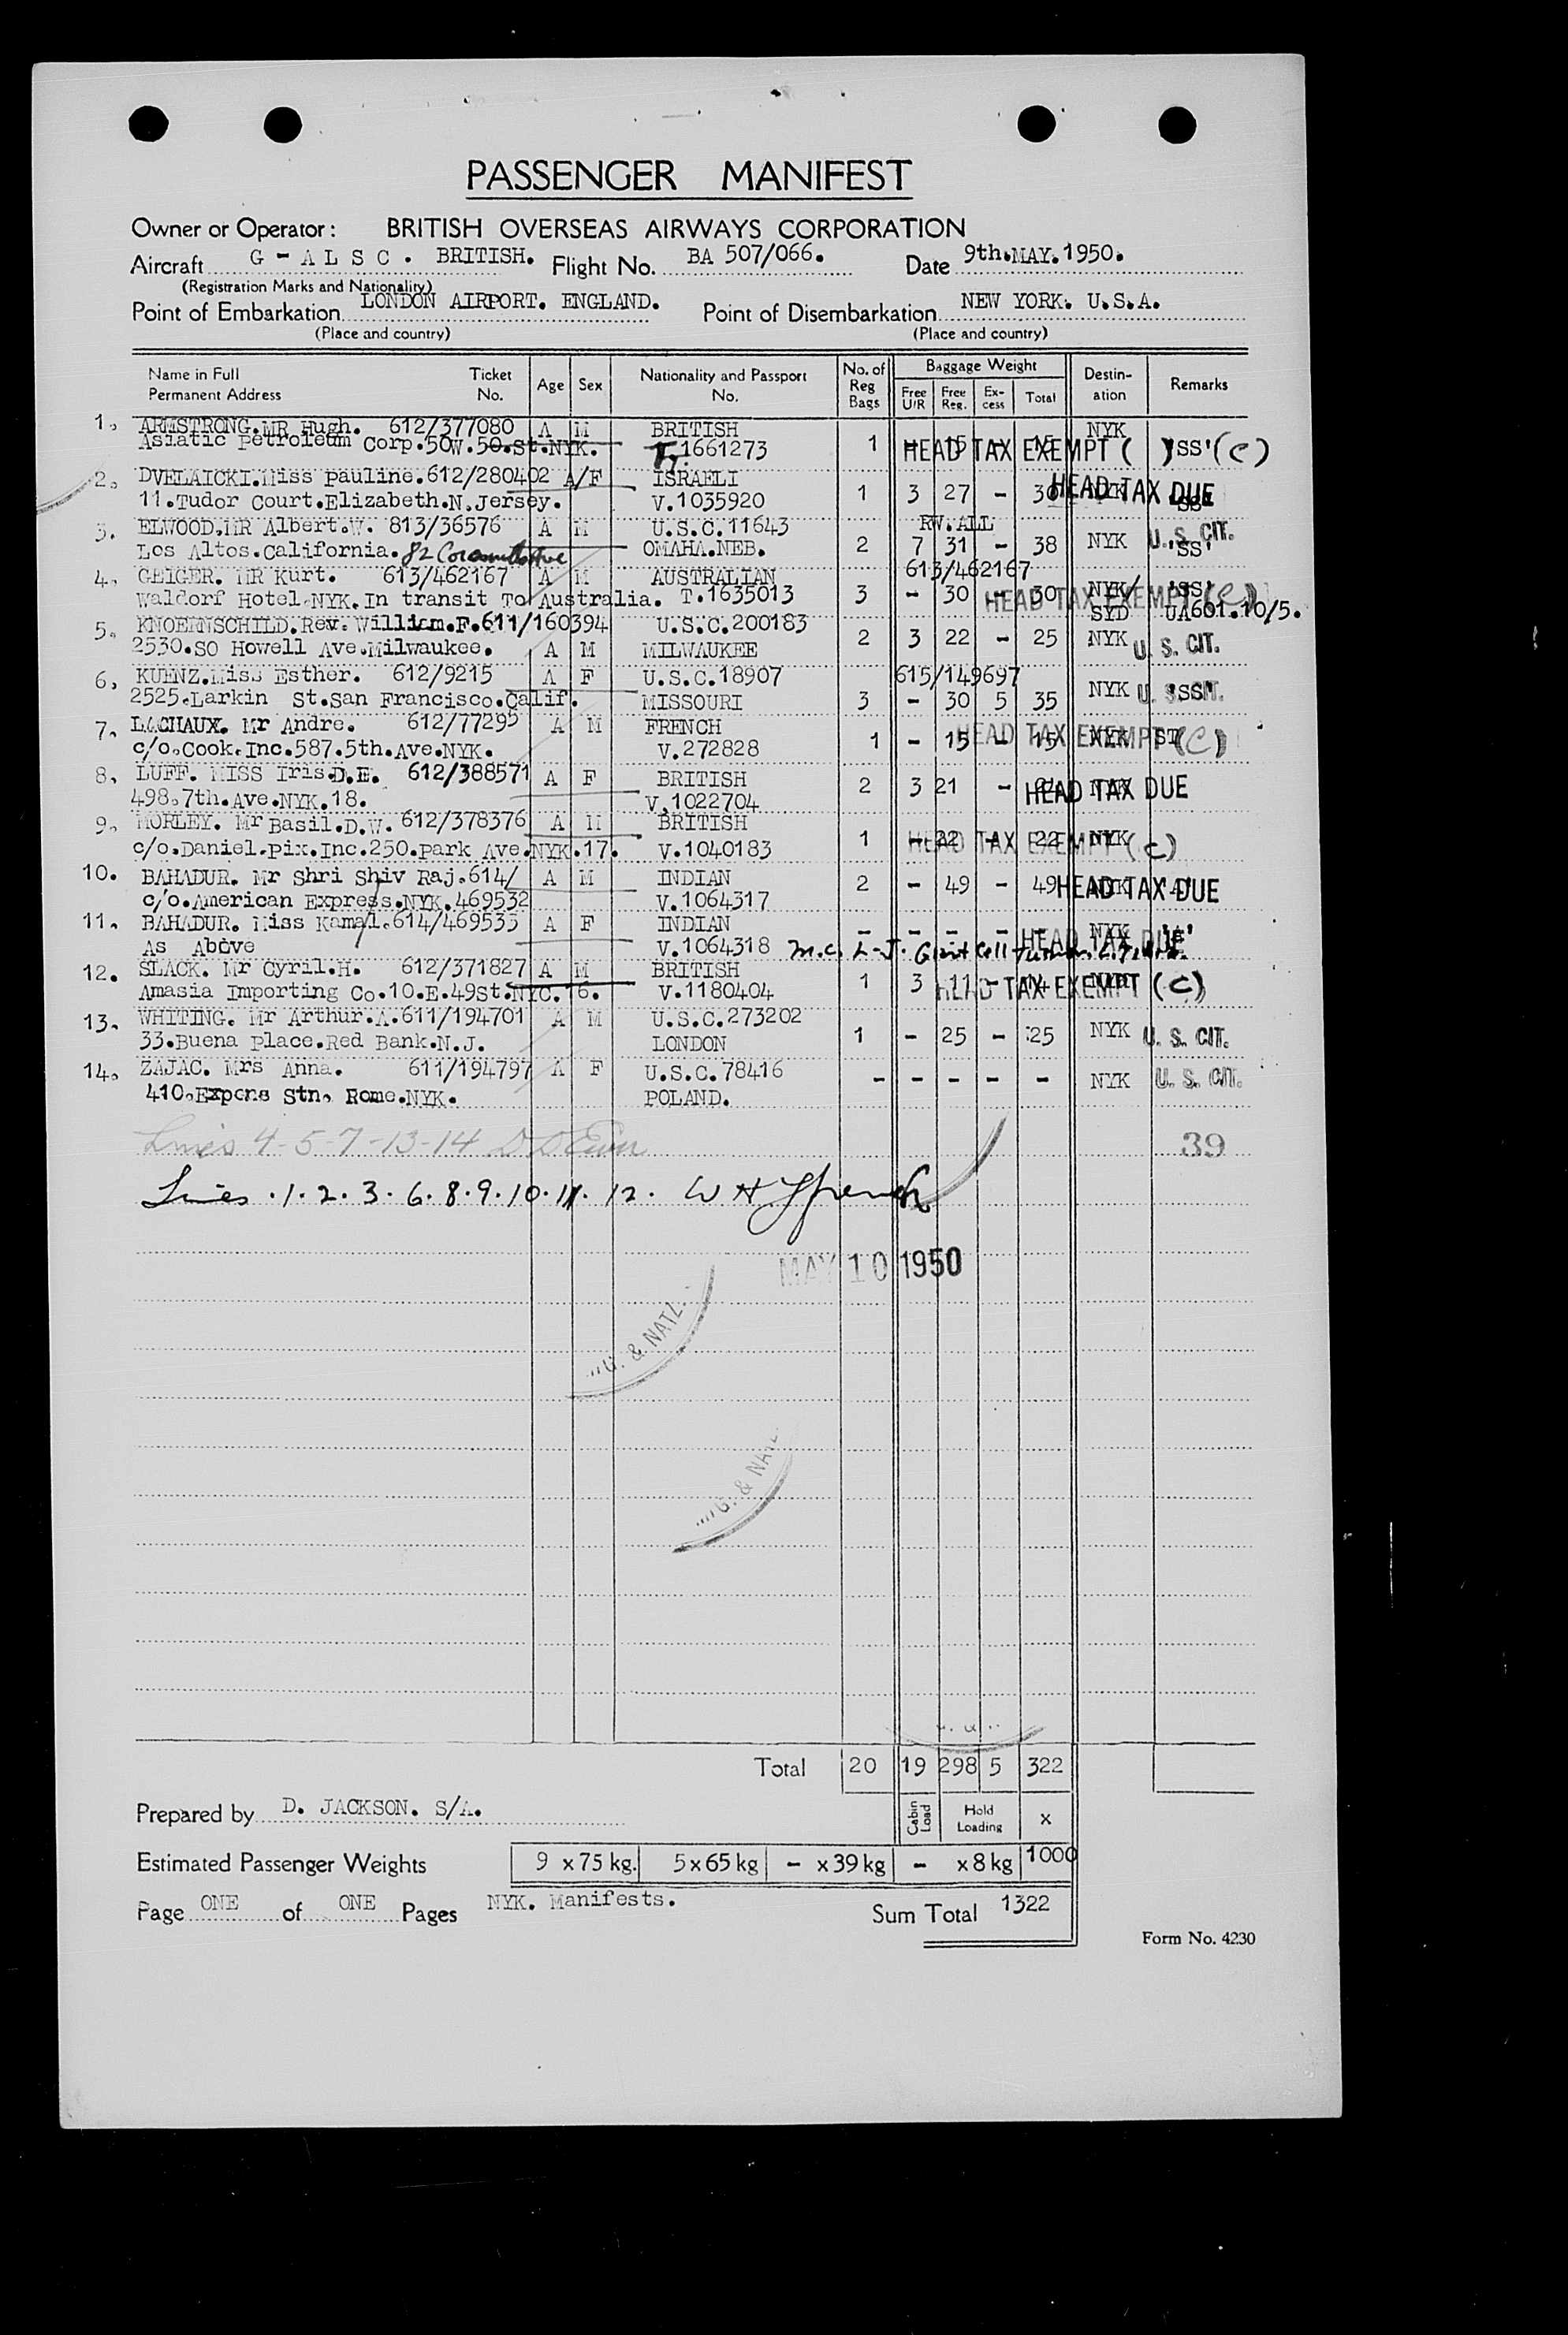 PASSENGER MANIFEST
Owner or Operator: BRITISH OVERSEAS AIRWAYS CORPORATION
Aircraft G - A L S C . BRITISH. Flight No. BA 507/066. Date 9th.MAY.1950.
(Registration Marks and Nationality)
Point of Embarkation LONDON AIRPORT. ENGLAND. Point of Disembarkation NEW YORK. U.S.A.
(Place and country) (Place and country)
Name in Full Ticket Age Sex Nationality and Passport No. of Baggage Weight Destin- Remarks
Permanent Address No. No. Reg Bags Free U/R Free Reg. Ex-cess Total ation
1. ARMSTRONG.MR Hugh. 612/377080 A M BRITISH NYK
Asiatic Petroleum Corp.50W.50.St.NYK. 1661273 1 - 15 - 15 HEAD TAX EXEMPT ( ) 'SS' (C)
2. DVELAICKI.Miss Pauline.612/280402 A/F ISRAELI
11.Tudor Court.Elizabeth.N.Jersey. V.1035920 1 3 27 - 30 NYK HEAD TAX DUE 'SS'
3. ELWOOD.MR Albert.W. 813/36576 A M U.S.C.11643 RW.ALL
Los Altos.California. 82 OMAHA.NEB. 2 7 31 - 38 NYK U.S. CIT. 'SS'
4. GEIGER. MR Kurt. 613/462167 A M AUSTRALIAN 613/462167
Waldorf Hotel.NYK.In transit To Australia. T.1635013 3 - 30 - 30 NYK/ 'SS' HEAD TAX EXEMPT (C)
SYD UA601.10/5.
5. KNOERNSCHILD.Rev. William.F.611/160394 U.S.C.200183
2530.SO Howell Ave.Milwaukee. A M MILWAUKEE 2 3 22 - 25 NYK U. S. CIT.
6. KUENZ.Miss Esther. 612/9215 A F U.S.C.18907 615/149697
2525.Larkin St.San Francisco.Calif. MISSOURI 3 - 30 5 35 NYK U. S. CIT. 'SS'
7. LACHAUX. Mr Andre. 612/77295 A M FRENCH
c/o.Cook.Inc.587.5th.Ave.NYK. V.272828 1 - 15 - 15 NYK HEAD TAX EXEMPT (C)
8. LUFF. MISS Iris.D.E. 612/388571 A F BRITISH
498.7th.Ave.NYK.18. V.1022704 2 3 21 - 24 NYK HEAD TAX DUE
9. MORLEY. Mr Basil.D.W. 612/378376 A M BRITISH
c/o.Daniel.Pix.Inc.250.Park Ave.NYK.17. V.1040183 1 - 22 - 22 NYK HEAD TAX EXEMPT (C)
10. BAHADUR. Mr Shri Shiv Raj.614/ A M INDIAN
c/o.American Express.NYK.469532 V.1064317 2 - 49 - 49 NYK HEAD TAX DUE
11. BAHADUR. Miss Kamal.614/469533 A F INDIAN - - - - - NYK
As Above V.1064318 HEAD TAX DUE
12. SLACK. Mr Cyril.H. 612/371827 A M BRITISH
Amasia Importing Co.10.E.49St.NYC.16. V.1180404 1 3 11 - 14 NYK HEAD TAX EXEMPT (C)
13. WHITING. Mr Arthur.A.611/194701 A M U.S.C.273202
33.Buena Place.Red Bank.N.J. LONDON 1 - 25 - 25 NYK U. S. CIT.
14. ZAJAC. Mrs Anna. 611/194797 A F U.S.C.78416
410.Expens Stn. Rome.NYK. POLAND. - - - - - NYK U. S. CIT.
Lines 4-5-7-13-14 39
Lines .1.2.3.6.8.9.10.11.12. W H
MAY 10 1950
& NATL.
G. & NATL
Total 20 19 298 5 322
Prepared by D. JACKSON. S/A. Cabin Load Hold Loading x
Estimated Passenger Weights 9 x 75 kg. 5 x 65 kg - x 39 kg - x 8 kg 1000
Page ONE of ONE Pages NYK. Manifests. Sum Total 1322
Form No. 4230